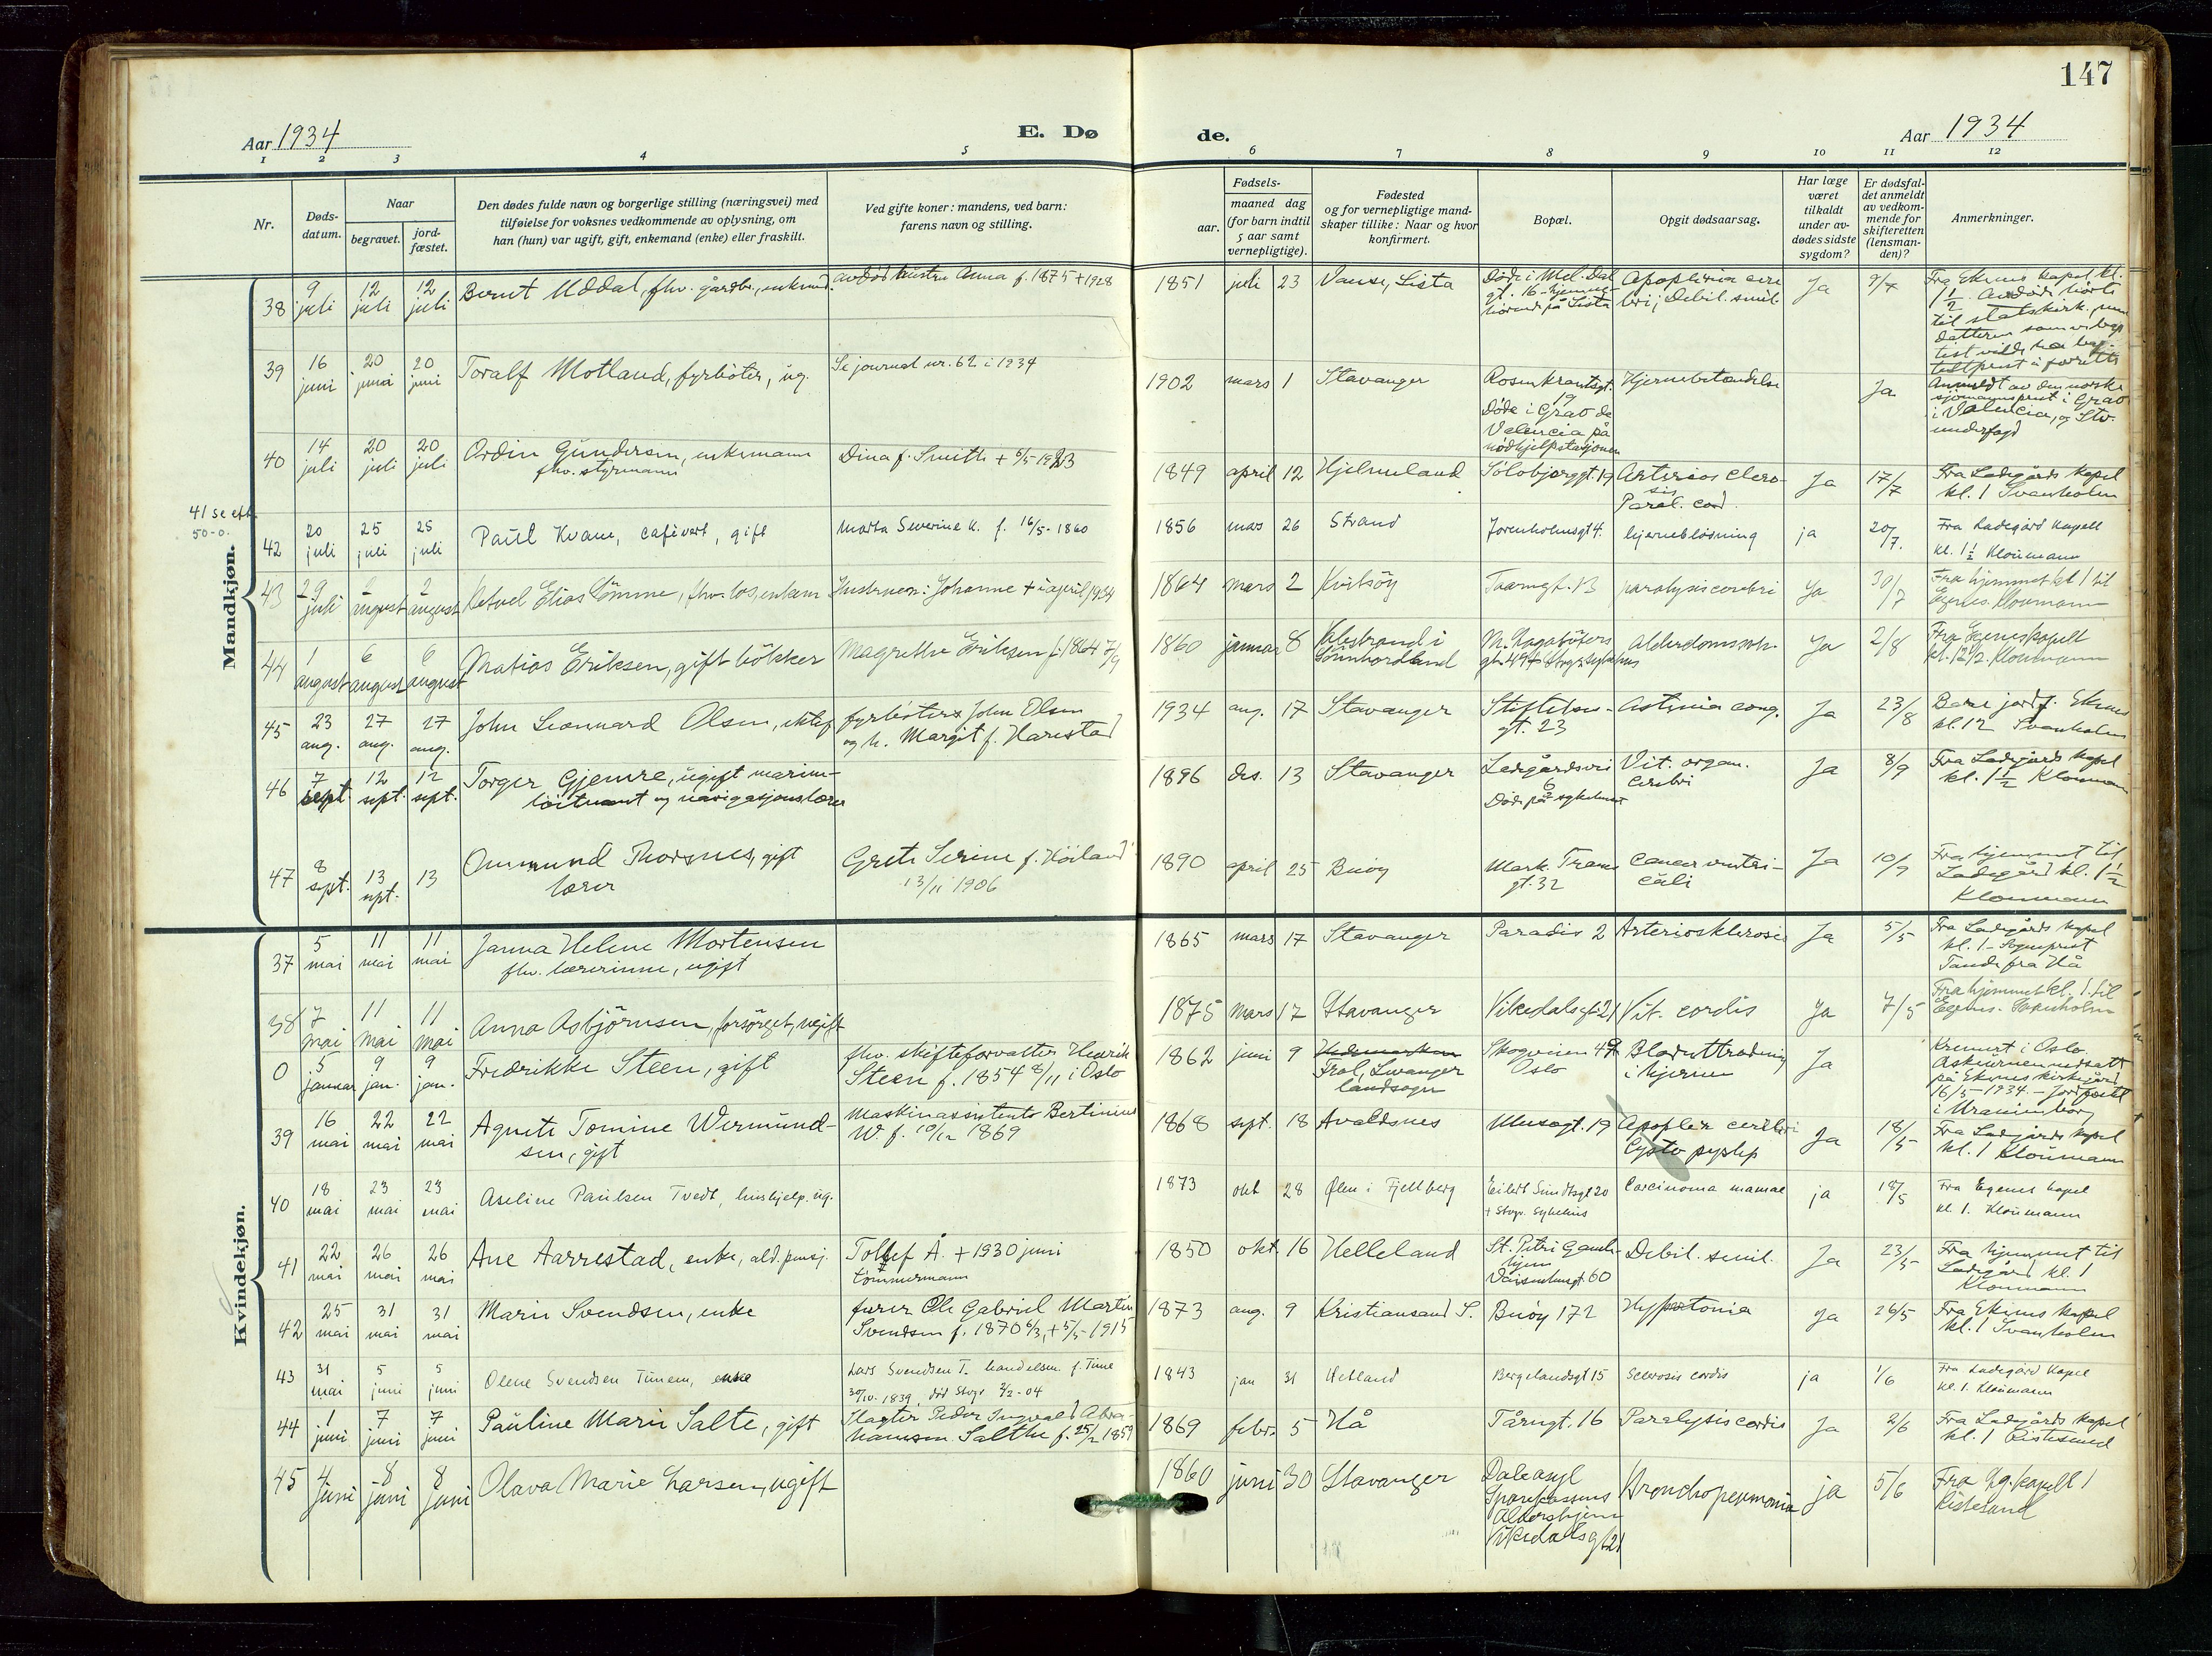 147
Aar 1934
E. Dø
de.
Aar 1934
1 2 3 4 5 6 7 8 9 10 11 12
Nr.
Døds-
datum.
Naar
begravet.
jord-
fæstet.
Den dødes fulde navn og borgerlige stilling (næringsvei) med
tilføielse for voksnes vedkommende av oplysning, om
han (hun) var ugift, gift, enkemand (enke) eller fraskilt.
Ved gifte koner: mandens, ved barn:
farens navn og stilling.
aar.
Fødsels-
maaned dag
(for barn indtil
5 aar samt
vernepligtige).
Fødested
og for vernepligtige mand-
skaper tillike: Naar og hvor
konfirmert.
Bopæl.
Opgit dødsaarsag.
Har læge
været
tilkaldt
under av-
dødes sidste
sygdom?
Er dødsfal-
det anmeldt
av vedkom-
mende for
skifteretten
(lensman-
den)?
Anmerkninger.
Mandkjøn.
38 9 juli 12 juli 12 juli Bernt Uddal, fhv. gårdbr., enkemd. avdød hustru Anna f. 1875 + 1928 1851 juli 23 Vanse, Lista
Døde i Mel. Dal
gt. 16 - hjemme-
hörende på Lista
Apoplexia cere
bri; Debil. senil
Ja 9/7
Fra Ekenes kapel kl.
1 1/2. Avdøde hørte
til statskirk. men
datteren som er bap
tist vilde ha bap-
tistprest i forrette
39 16 juni 20 juni 20 juni Toralf Motland, fyrböter, ug. Se journal nr. 62 i 1934 1902 mars 1 Stavanger
Rosenkrantzgt.
19
Døde i Grao de
Valencia på
nödhjelpstasjonen
Hjernebetændelse
Ja
Anmeldt av den norske
sjömannsprest i Grao
i Valencia, og Stv.
underfogd
40 14 juli 20 juli 20 juli Ordin Gundersen, enkemann
fhv. styrmann
Dina f. Smith + 6/5-1923 1849 april 12 Hjelmeland Sölvbjerggt. 19
Arterios clero-
sis
Paral. cord.
Ja 17/7
Fra Ladegårds kapel
kl. 1 Svanholm
41 se eft.
50-0.
42 20 juli 25 juli 25 juli Paul Kvame, cafévert, gift Marta Severine K. f. 16/5-1860 1856 mars 26 Strand Jorenholmsgt 4. hjerneblødning ja 20/7.
Fra Ladegård Kapell
kl. 1 1/2 Kloumann
43 29 juli 2 august 2 august Ketvel Elias Lömme, fhv. los, enkem Hustruen: Johanne + i april 1934 1864 mars 2 Kvitsöy Taarngt. 13 paralysis cerebri Ja 30/7
Fra hjemmet kl 1 til
Egenes. Kloumann
44 1 august 6 august 6 august Matias Eriksen, gift bökker Magrethe Eriksen f. 1864 7/9 1860 januar 8
Valestrand i
Sönnhordland
M. Lagabøters
gt. 49 + Stvgr. Sykehus
Alderdomssvk. Ja 2/8
Fra Egeneskapell
kl. 12 1/2. Kloumann
45 23 aug. 27 aug. 27 aug. John Leonnard Olsen, ektef.
fyrböter John Olsen
og h. Margit f. Harestad
1934 aug. 17 Stavanger
Stiftelses-
gt. 23
Astenia cong. Ja 23/8
Bare jordf. Ekenes
kl. 12 Svanholm
46 7 sept 12 sept. 12 sept. Torger Gjemre, ugift marine-
löitnant og navigasjonslærer
1896 des. 13 Stavanger
Ladegårdsvei
6
Döde på sykehuset
Vit. organ.
cerebri
Ja 8/9
Fra Ladegårds kapel
kl. 1 1/2 Kloumann
47 8 sept. 13 sept. 13 Ommund Thorsnes, gift
lærer
Grete Serine f. Höiland
13/11 1906
1890 april 25 Buöy
Mark. Trane
gt. 32
Cancer ventri-
culi
Ja 10/9
Fra hjemmet til
Ladegård kl. 1 1/2
Kloumann
Kvindekjøn.
37 5 mai 11 mai 11 mai Janna Helene Mortensen
fhv. lærerinne, ugift
1865 mars 17 Stavanger Paradis 2 Arteriosklerosis Ja 5/5
Fra Ladegårds kapel
kl. 1 - Sogneprest
Tande fra Hå
38 7 mai 11 mai 11 mai Anna Asbjörnsen, forsörget, ugift 1875 mars 17 Stavanger Vikedalsgt 21 Vit. cordis Ja 7/5
Fra hjemmet kl. 1 til
Egenes. Svanholm
0 5 januar 9 jan. 9 jan. Fredrikke Steen, gift
fhv. skifteforvalter Henrik
Steen f. 1854 8/11 i Oslo
1862 juni 9
Hedemarken
Frol, Levanger
landsogn
Skogveien 49
Oslo
Bloduttredning
i hjernen
Ja
Kremert i Oslo.
Askeurnen nedsatt
på Ekenes kirkegård
16/5-1934. - jordfestet
i Uranienborg
39 16 mai 22 mai 22 mai Agnete Tomine Wermund-
sen, gift
Maskinassistent Bertinius
W. f. 10/12 1869
1868 sept. 18 Avaldsnes Musegt. 19
Apoplex cerebri
Cysto pyslep
Ja 18/5
Fra Ladegårds kapel
kl. 1 Kloumann
40 18 mai 23 mai 23 mai Aseline Paulsen Tvedt, hushjelp. ug. 1873 okt 28 Ølen i Fjellberg
Eilert Sundtsgt 20
+ Stvgr. Sykehus
Carcinoma mamae ja 18/5
Fra Egenes kapel
kl. 1. Kloumann
41 22 mai 26 mai 26 mai Ane Aarrestad, enke, ald. pensj.
Tollef Å. + 1930 juni
tömmermann
1850 okt 16 Helleland
St. Petri Gamle-
hjem
Vaisenhusgt. 60
Debil. senil. Ja 23/5
Fra hjemmet til
Ladegård kl. 1
Kloumann
42 25 mai 31 mai 31 mai Marie Svendsen, enke
furer Ole Gabriel Martin
Svendsen f. 1870 6/3, + 5/5-1915
1873 aug. 9 Kristiansand S. Buöy 172 Hypertonia Ja 26/5
Fra Ekenes kapel
kl. 1 Svanholm
43 31 mai 5 juni 5 juni Olene Svendsen Timem, enke
Lars Svendsen T. handelsm. f. Time
30/10. 1839, död Stvgr 2/2-04
1843 jan 31 Hetland Bergelandsgt 15 Sclerosis cordis ja 1/6
Fra Ladegård Kapel
kl. 1. Kloumann
44 1 juni 7 juni 7 juni Pauline Marie Salte, gift
Slagter Peder Ingvald Abra-
hamsen Salthe f. 25/2 1859
1869 febr. 5 Hå Tårngt. 16 Paralysis cordis Ja 2/6
Fra Ladegårds kapel
kl. 1 Ristesund
45 4 Juni 8 juni 8 juni Olava Marie Larsen, ugift 1860 juni 30 Stavanger
Daleasyl
Sparekassens
Aldershjem
Vikedalsgt 21
Bronchopeumonia ja 5/6
Fra Lg. kapell 1
Risteland